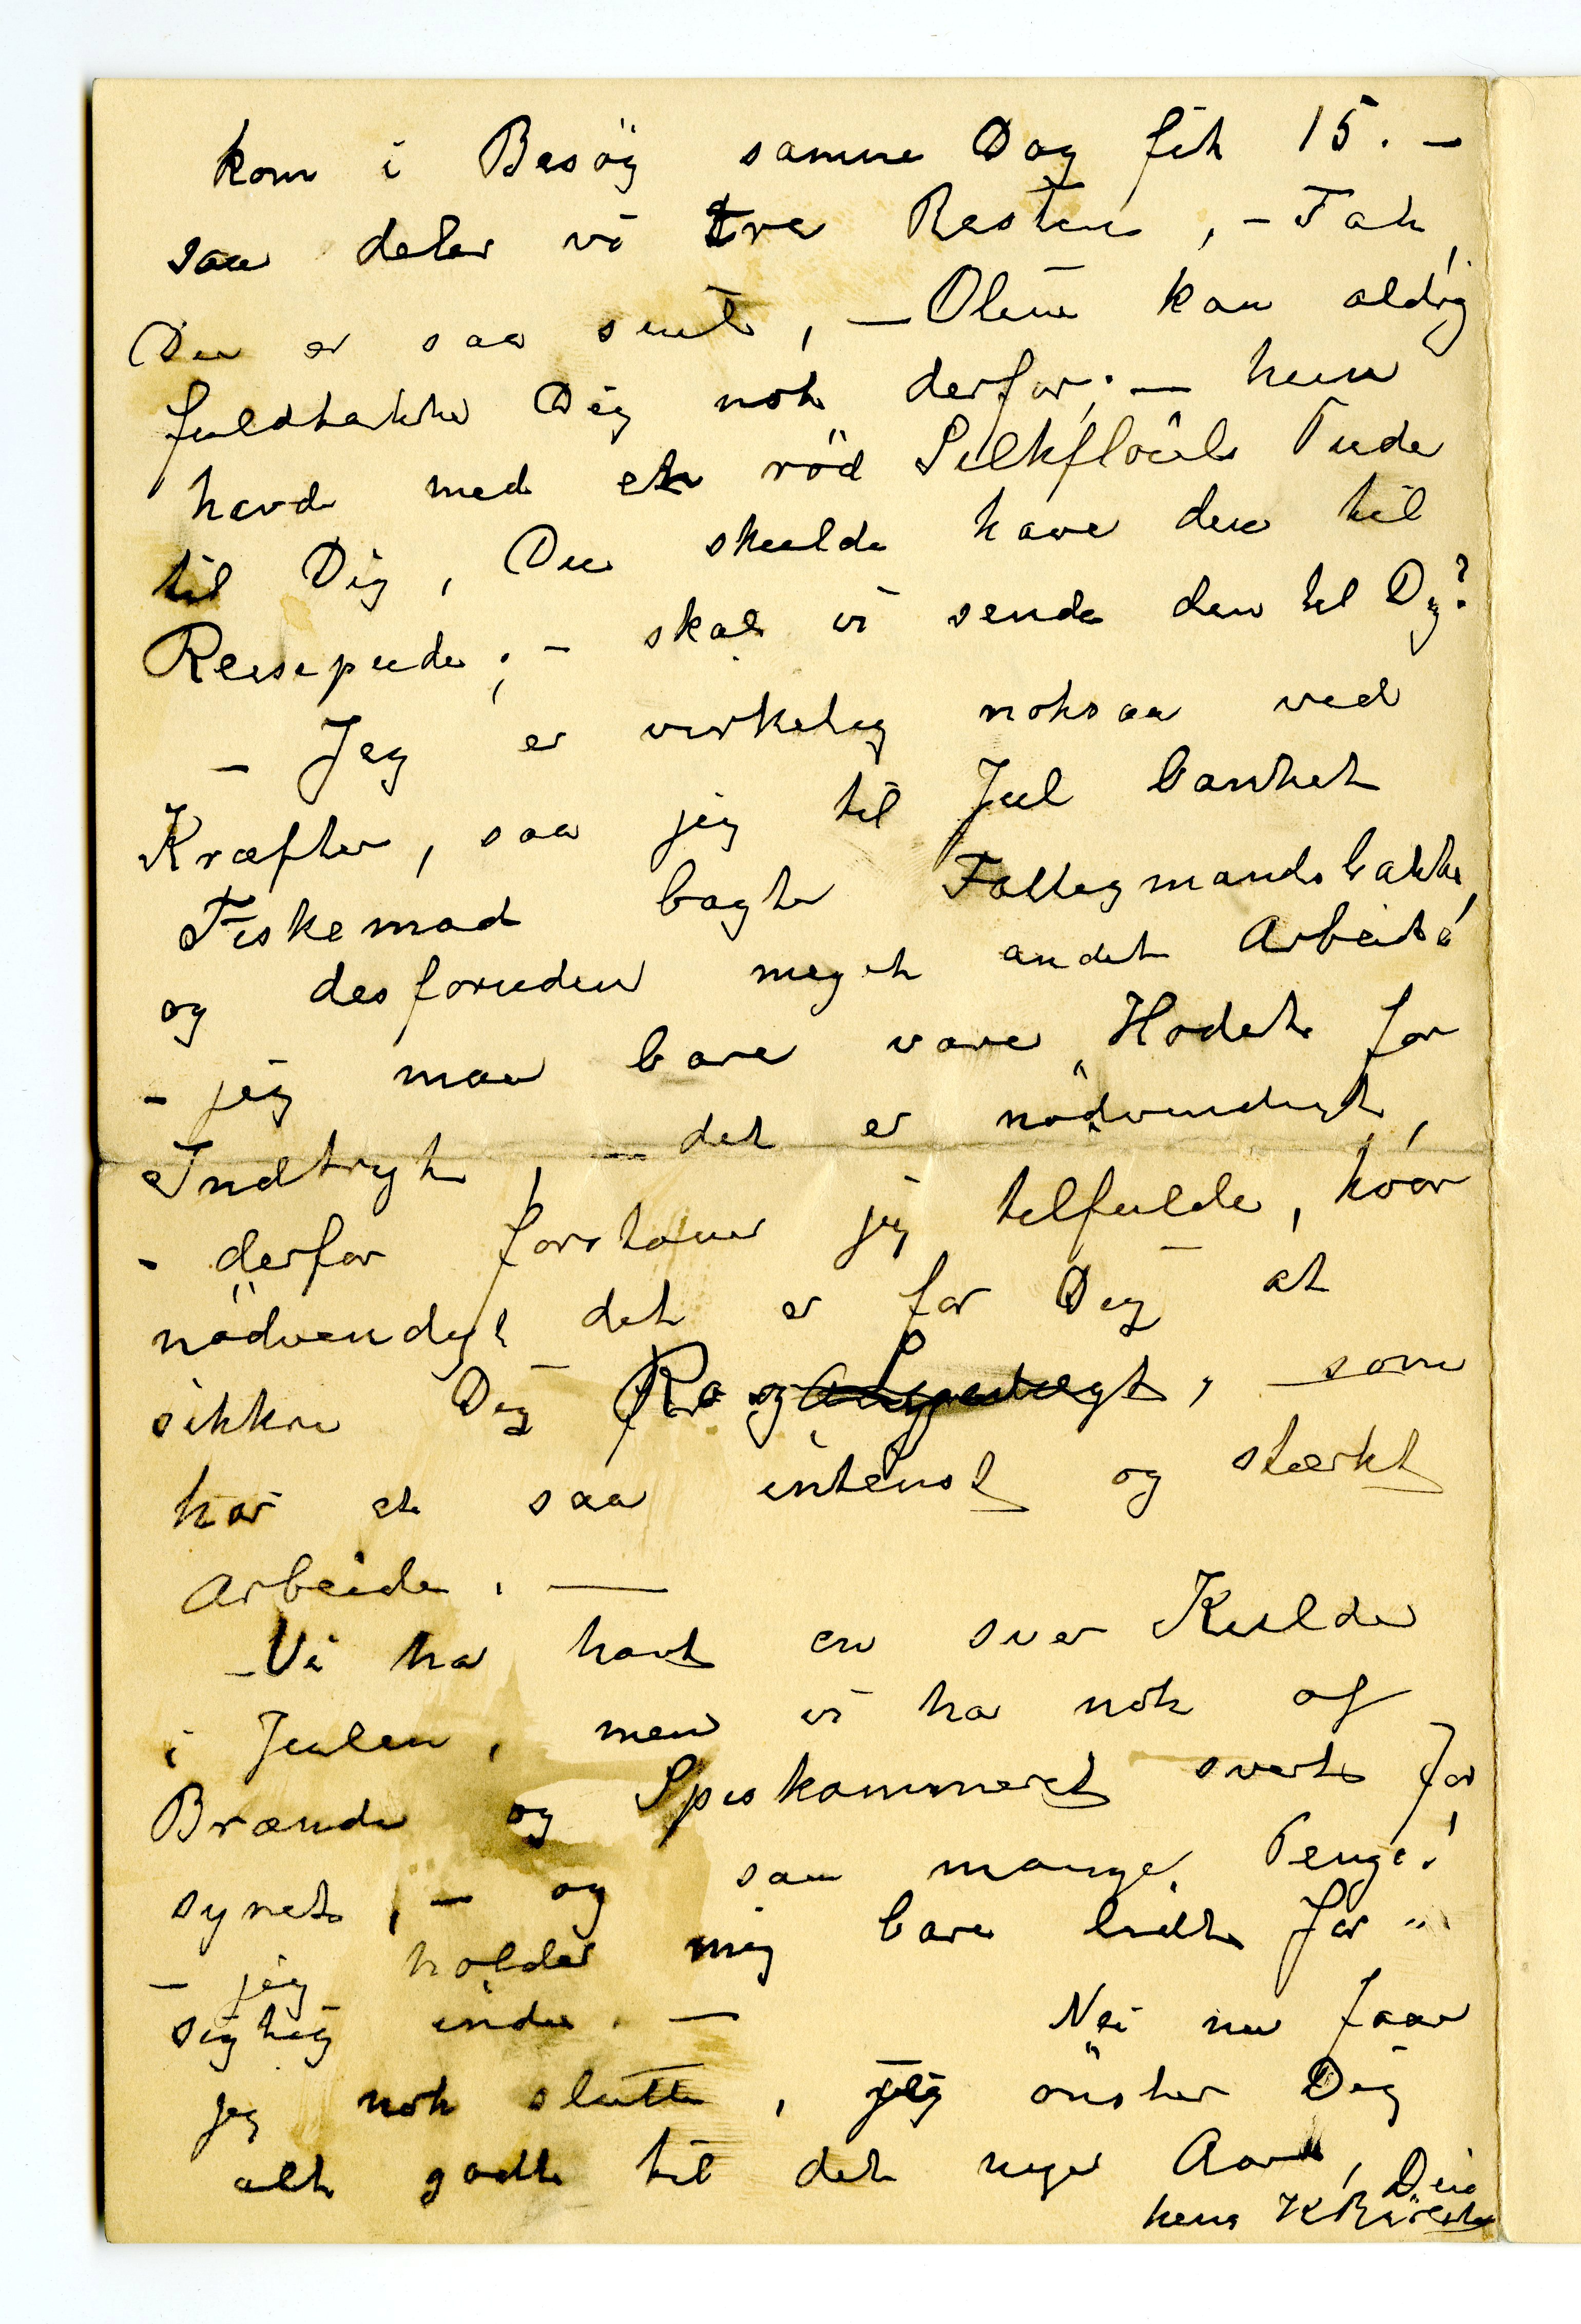 kom i Besög samme Dag fik 15. –
saa deler vi tre Resten, – Tak,
Du er saa snil, – Olene kan aldrig
fuldtakke Dig nok derfor; – hun
havde med en röd Silkflöiels Pude
til Dig, Du skulde have den til
Reisepude; – skal vi sende den til Dig?
– Jeg er virkelig noksaa ved
Kræfter, saa jeg til Jul banket
Fiskemad bagte Fattigmandsbakke,
og desforuden meget andet Arbeide!
– jeg maa bare vare "Hodet" for
Indtryk, – det er nödvendigt,
– derfor forstaaer jeg tilfulde, hvor
nödvendigt det er for Dig at
sikkre Dig Ro og, som
har et saa intenst og stærkt
Arbeide. –
– Vi ha havt en svær Kulde
i Julen, men vi ha nok af
Brænde og Spiskammeret svært for
synet, – og saa mange Penge!
– jeg holder mig bare lidt for "
sigtig inde. – Nei nu faar
jeg nok slutte, jeg önsker Dig
alt godt til det nye Aar, Din